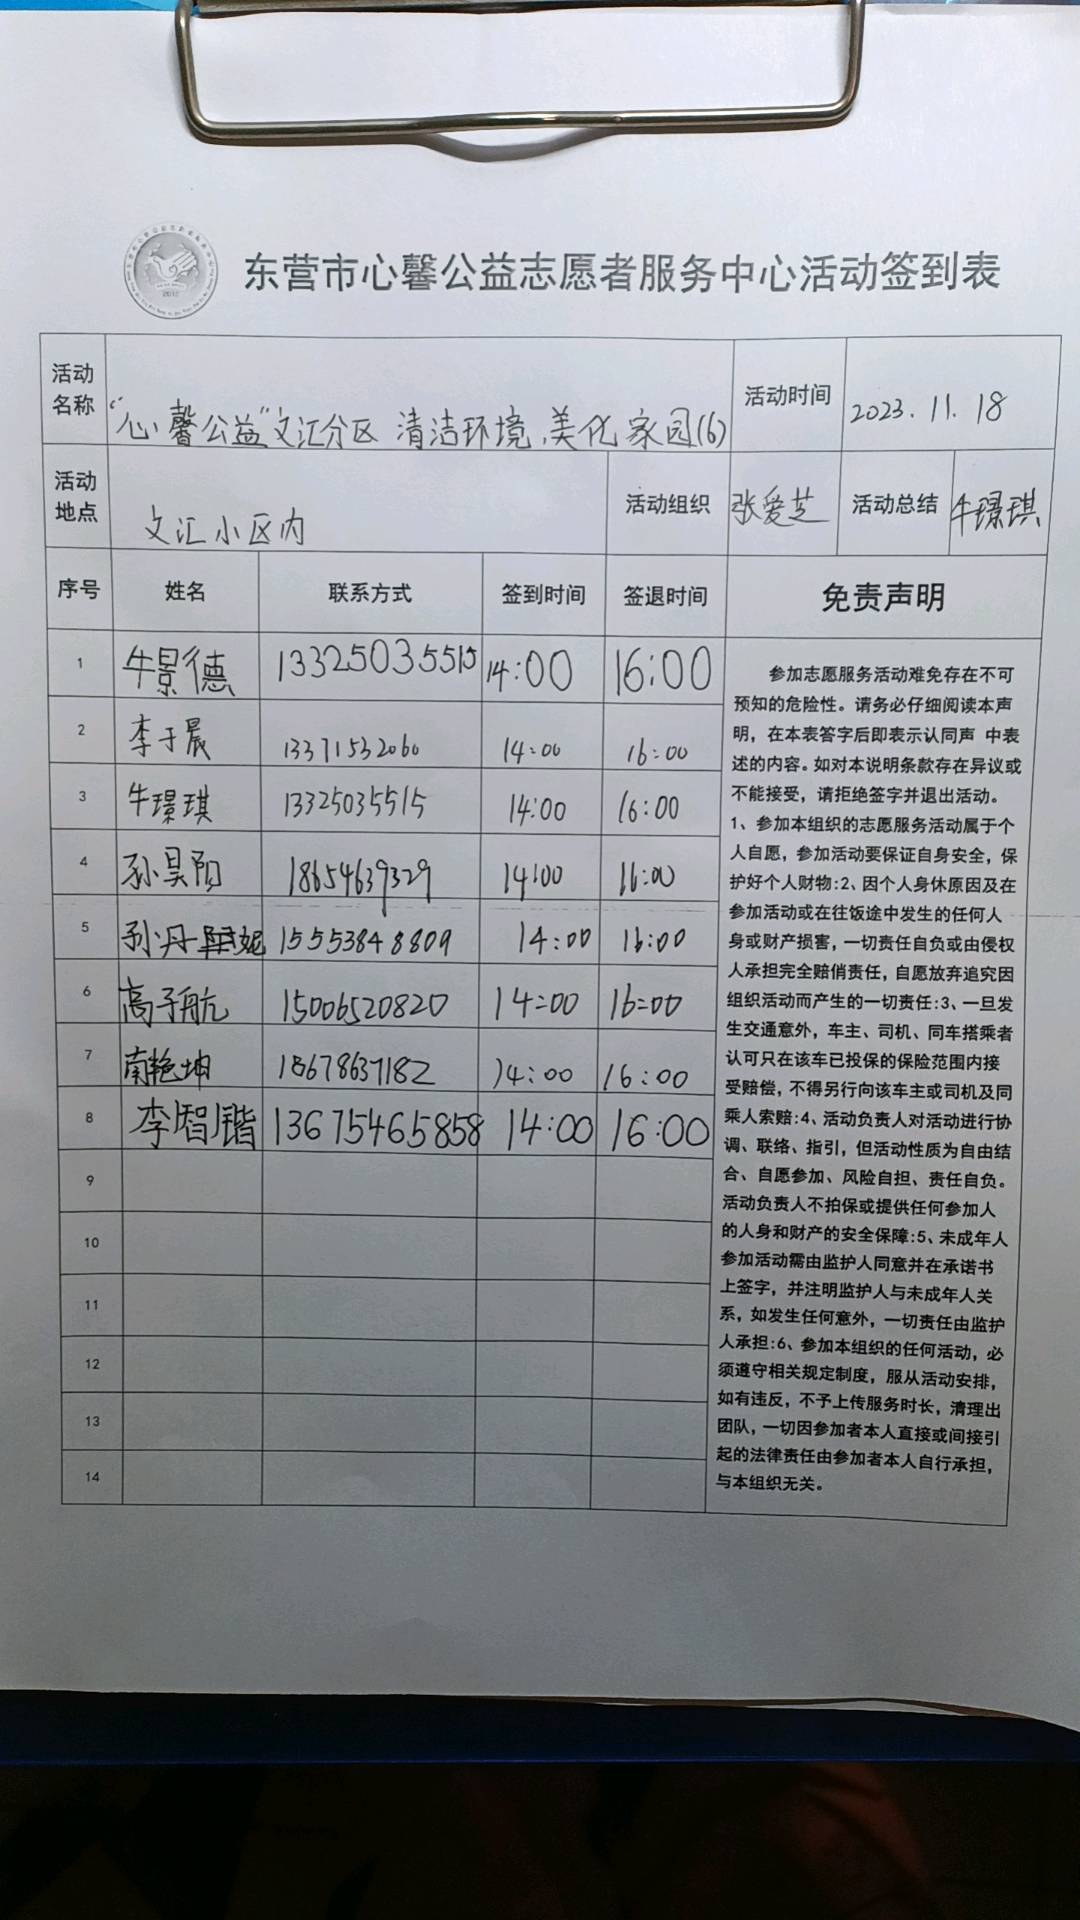 东营市心馨公益志愿者服务中心活动签到表
活动名称 “心馨公益”文汇分区 清洁环境、美化家园(6) 活动时间 2023.11.18
活动地点 文汇小区内 活动组织 张爱芝 活动总结 牛璟琪
序号 姓名 联系方式 签到时间 签退时间 免责声明
1 牛景德 13325035515 14:00 16:00
2 李于晨 13371532060 14:00 16:00
3 牛璟琪 13325035515 14:00 16:00
4 孙昊阳 18654639329 14:00 16:00
5 孙丹妮 15553848809 14:00 16:00
6 高子航 15006520820 14:00 16:00
7 南艳坤 18678637182 14:00 16:00
8 李智锴 13675465858 14:00 16:00
9
10
11
12
13
14
参加志愿服务活动难免存在不可
预知的危险性。请务必仔细阅读本声
明，在本表答字后即表示认同声 中表
述的内容。如对本说明条款存在异议或
不能接受，请拒绝签字并退出活动。
1、参加本组织的志愿服务活动属于个
人自愿，参加活动要保证自身安全，保
护好个人财物:2、因个人身休原因及在
参加活动或在往饭途中发生的任何人
身或财产损害，一切责任自负或由侵权
人承担完全赔俏责任，自愿放弃追究因
组织活动而产生的一切责任:3、一旦发
生交通意外，车主、司机、同车搭乘者
认可只在该车已投保的保险范围内接
受赔偿，不得另行向该车主或司机及同
乘人索赔:4、活动负责人对活动进行协
调、联络、指引，但活动性质为自由结
合、自愿参加、风险自担、责任自负。
活动负责人不拍保或提供任何参加人
的人身和财产的安全保障:5、未成年人
参加活动需由监护人同意并在承诺书
上签字，并注明监护人与未成年人关
系，如发生任何意外，一切责任由监护
人承担:6、参加本组织的任何活动，必
须遵守相关规定制度，服从活动安排，
如有违反，不予上传服务时长，清理出
团队，一切因参加者本人直接或间接引
起的法律责任由参加者本人自行承担，
与本组织无关。